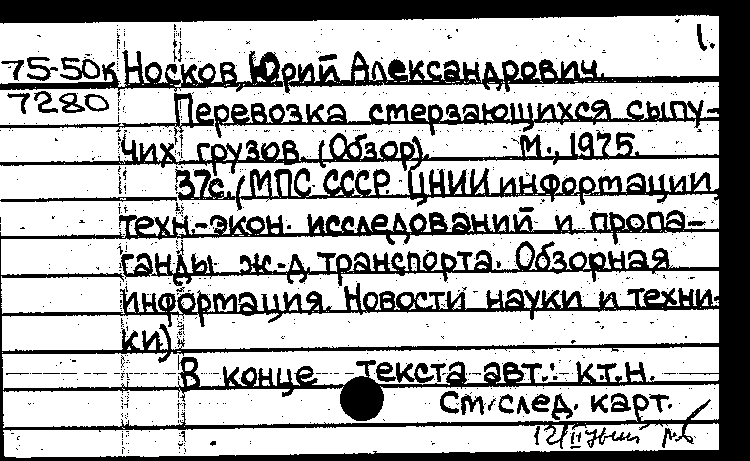 1.
75-50к Носков, Юрий Александрович.
7280 Перевозка смерзающихся сыпу-
чих грузов. (Обзор). М., 1975.
37с. (МПС СССР. ЦНИИ информации,
техн.-экон. исследований и пропа-
ганды ж.-д. транспорта. Обзорная
информация. Новости науки и техни-
ки)
В конце текста авт.: к.т.н.
См. след. карт.